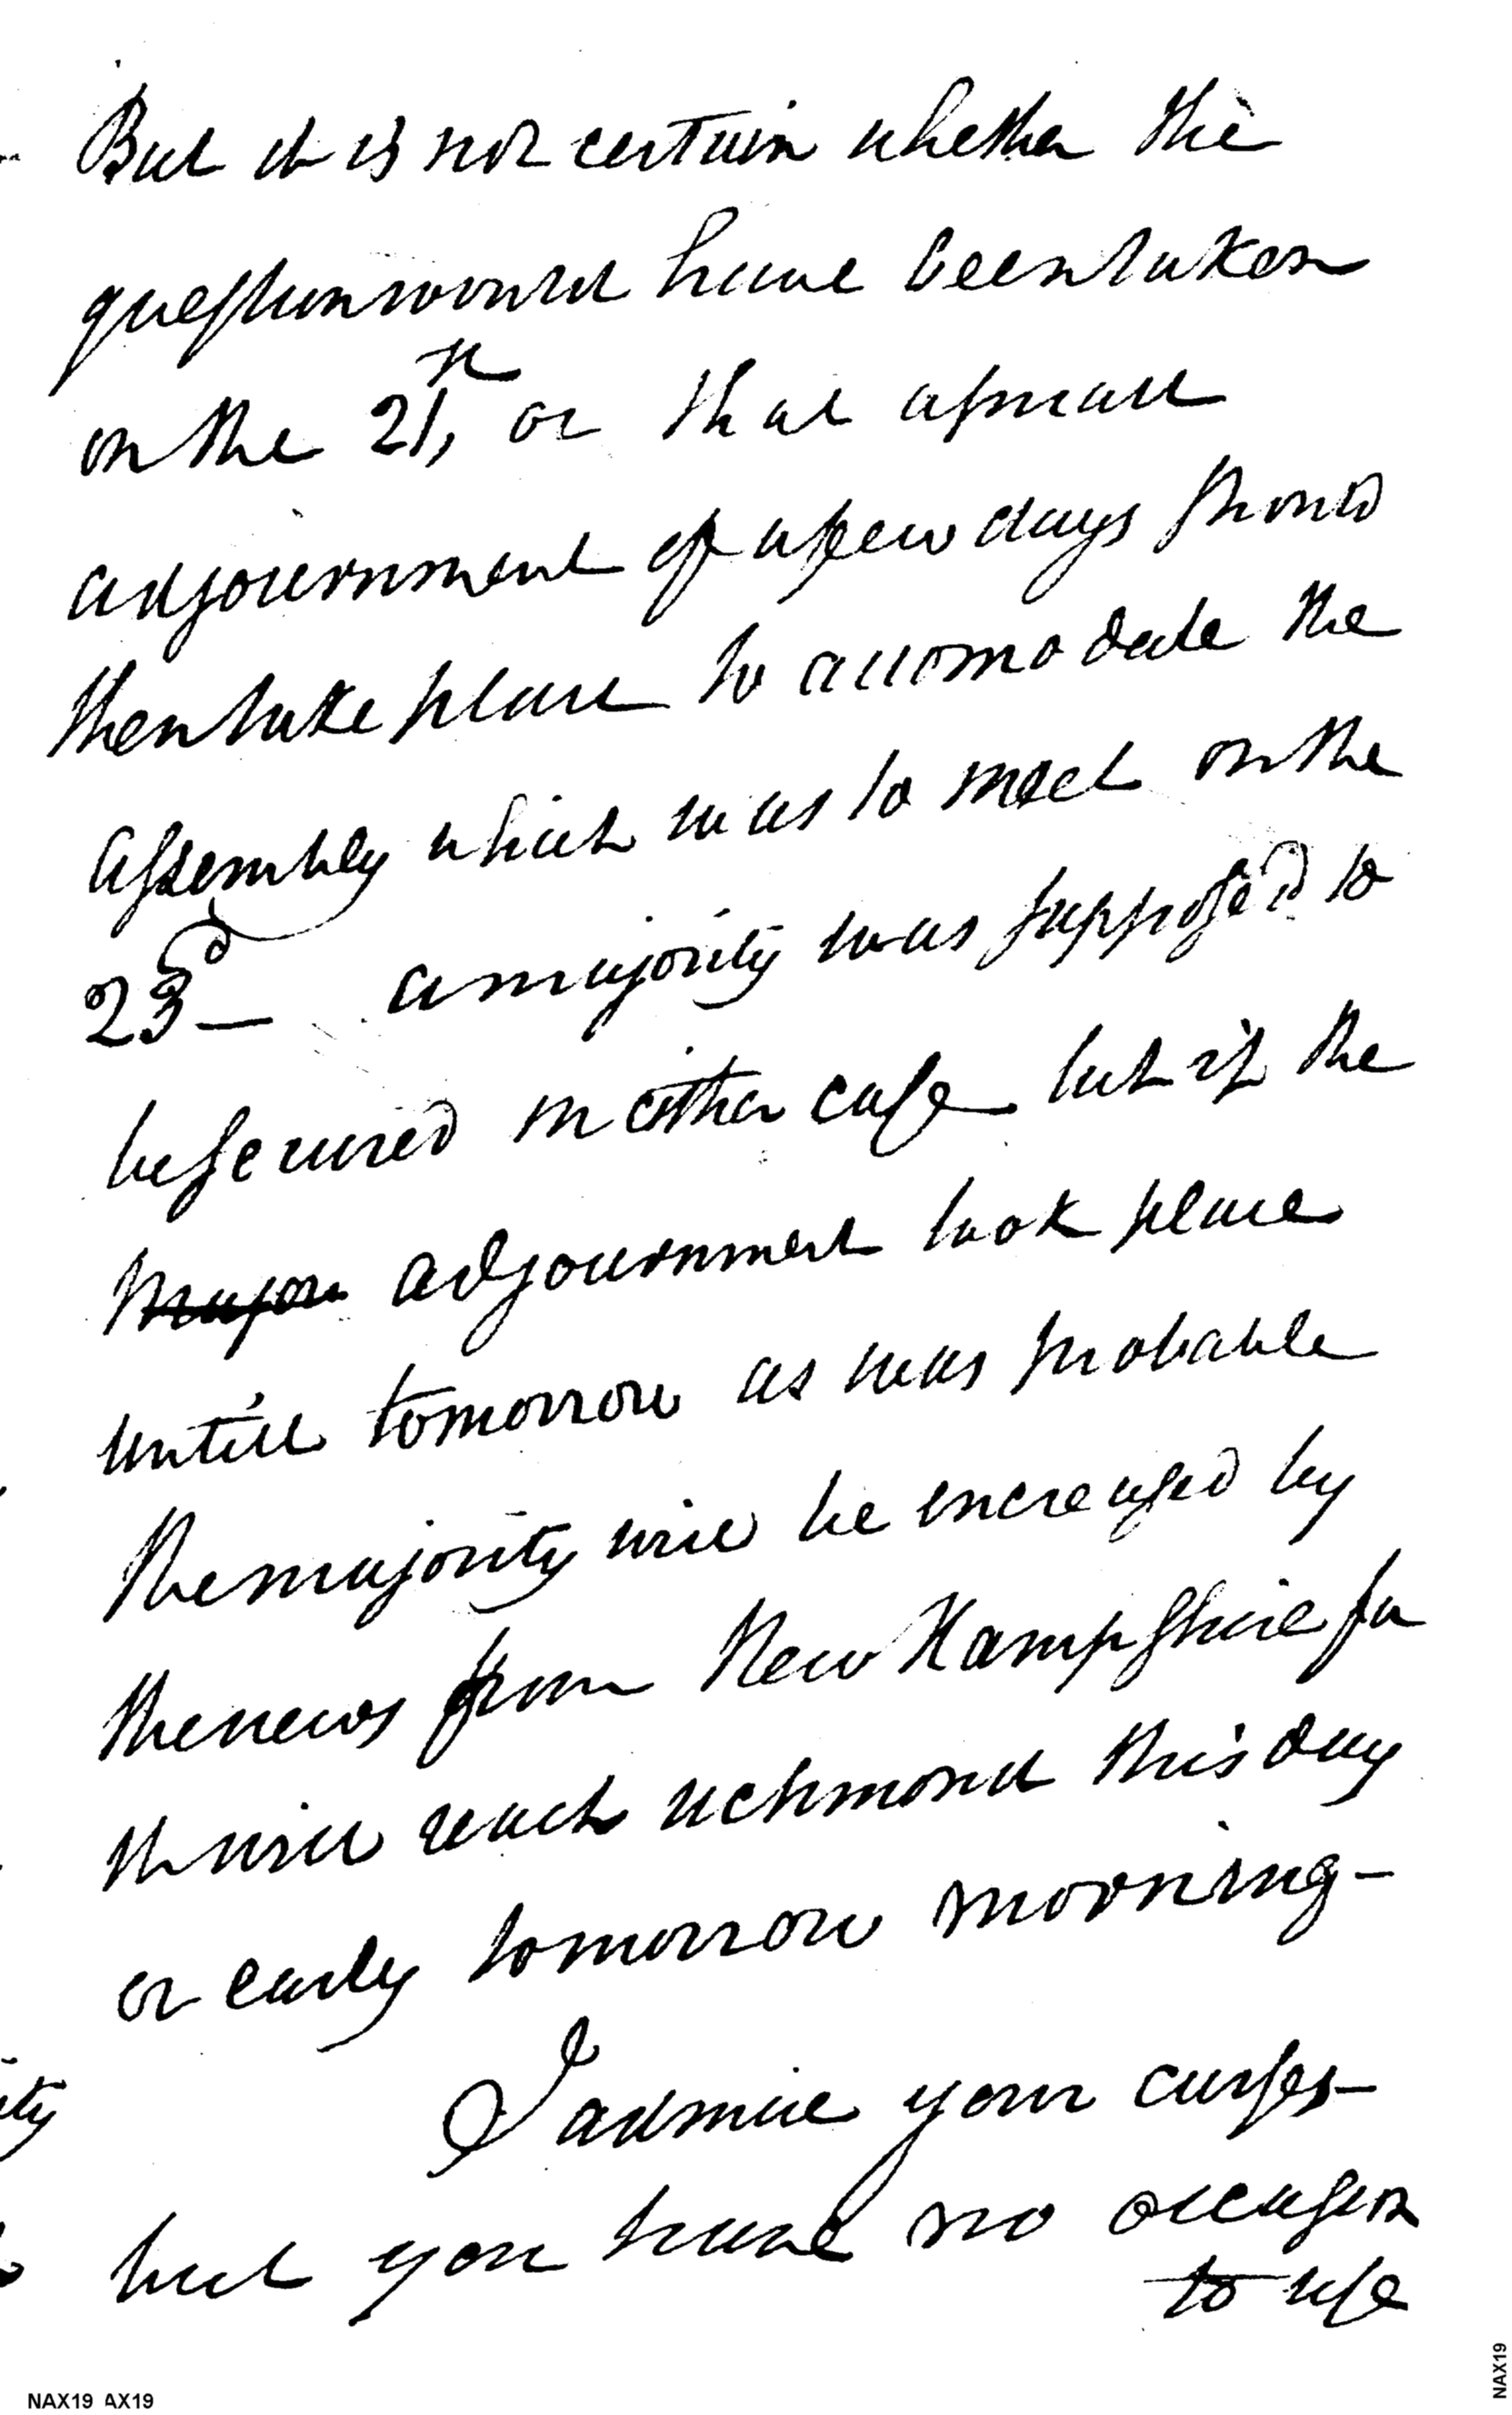 But it is not certain whether the
question would have been taken
on the 21st, or that a small
adjournment of a few days should
then take place to accomodate the
assembly which was to meet on the
23d— a majority was supposed to
be secured in either case but if the
adjournment took place
untill tomorrow as was probable
the majority will be encreased by
the news from New Hampshire for
th will reach richmond this day
or early tomorrow morning—
I admire your curses—
but you have no occasion
to use
ity
NAX19 AX19
NAX19